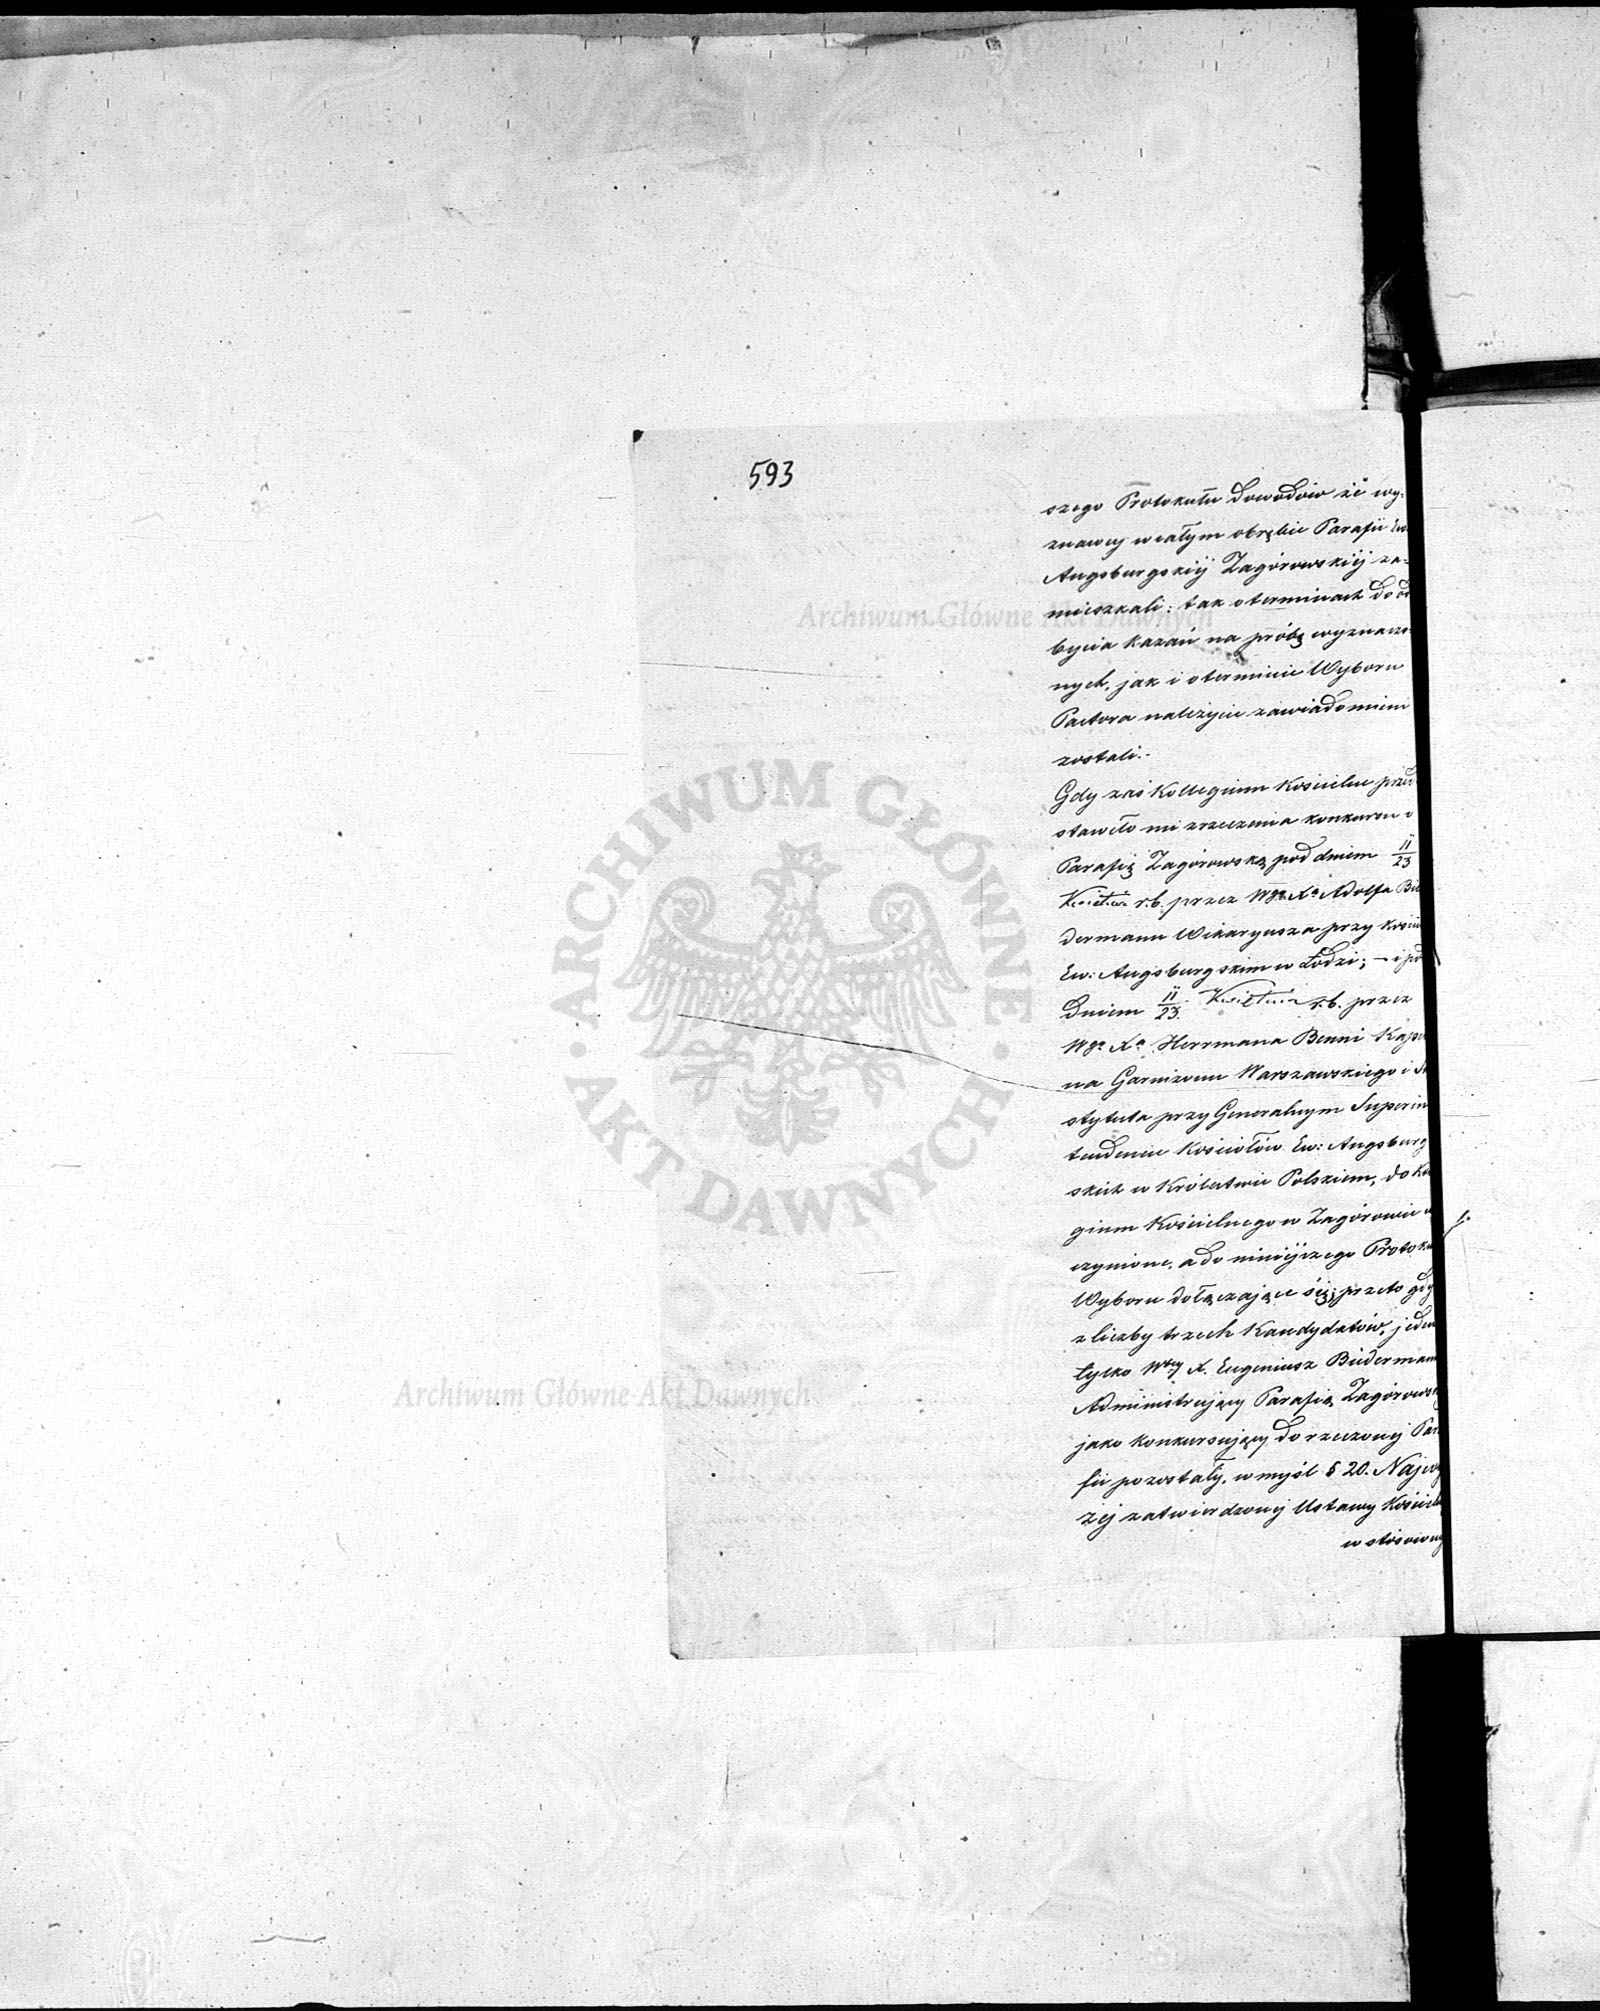 593
szego Protokułu dowodów że wy-
znawcy w całym obrębie Parafii Ew
Augsburgskiéj Zagórowskiéj za-
mieszkali: tak o terminach do od
bycia kazań na próbę wyznaczo-
nych, jak i o terminie Wyboru
Pastora należycie zawiadomieni
zostali.-
Gdy zaś Kollegium Kościelne przed
stawiło mi zrzeczenia konkursu o
Parafię Zagórowską pod dniem 11/23
Kwietnia r.b. przez Wgo Xa Adolfa Bie
dermann Wikaryusza przy Kościel
Ew: Augsburgskim w Łodzi; - i pod
dniem 11/23 Kwietnia r.b. przez
Wgo Xa Herrmana Benni Kape
na Garnizonu Warszawskiego i
stytuta przy Generalnym Superin
tendencie Kościołów Ew: Augsburg
skich w Królestwie Polskiem, do Ko
gium Kościelnego w Zagórowie
czynione, a do niniéjszego Protoku
Wyboru dołączające się; przeto gdy
z liczby trzech Kandydatów, jeden
tylko Wny X. Eugeniusz Biedermann
Administrujący Parafią Zagórowsk
jako konkursujący do rzeczonéj Par
fii pozostał, w myśl § 20. Najwy
żéj zatwierdzonéj Ustawy Kościel
w stósown
Archiwum Główne Akt Dawnych
ARCHIWUM GŁÓWNE
• AKT DAWNYCH •
Archiwum Główne Akt Dawnych